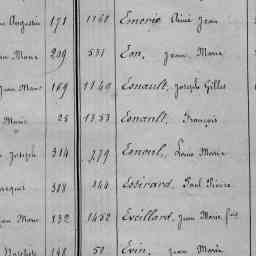 Augustin 171 1168 Emeric Aimé Jean
Marie 209 531 Eon, Jean Marie
Jean Marie 169 1140 Esnault, Joseph Gilles
Marie 25 1353 Esnault, François
Joseph 314 279 Esnoul, Louis Marie
Jacques 318 144 Essirard, Paul Pierre
Jean Marie 132 1452 Eveillard, Jean Marie fois
148 50 Evin, Jean Marie